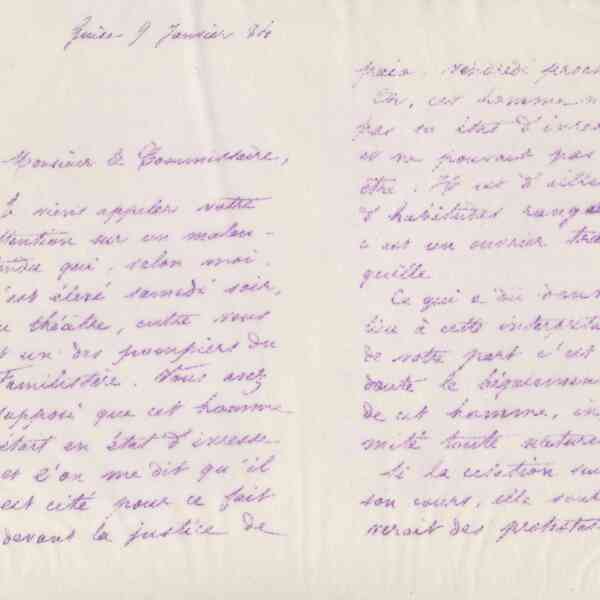 Guise 9 Janvier 86
Monsieur le Commissaire,
Je viens appeler votre
attention sur un malen-
tendu qui, selon moi,
s'est élevé samedi soir,
au théâtre, entre vous
et un des pompiers du
Familistère. Vous avez
supposé que cet homme
était en état d'ivresse
et l'on me dit qu'il
est cité pour ce fait
devant la justice de
paix, vendredi proch
Or, cet homme n
pas en état d'ivres
et ne pouvait pas
être. Il est d'aille
d'habitudes rangé
c'est un ouvrier tra
quille
Ce qui a dû donn
lieu à cette interpréta
de votre part c'est
doute le bégaiemen
de cet homme, in
mité toute nature
Si la citation sui
son cours, elle soul
verait des protesta